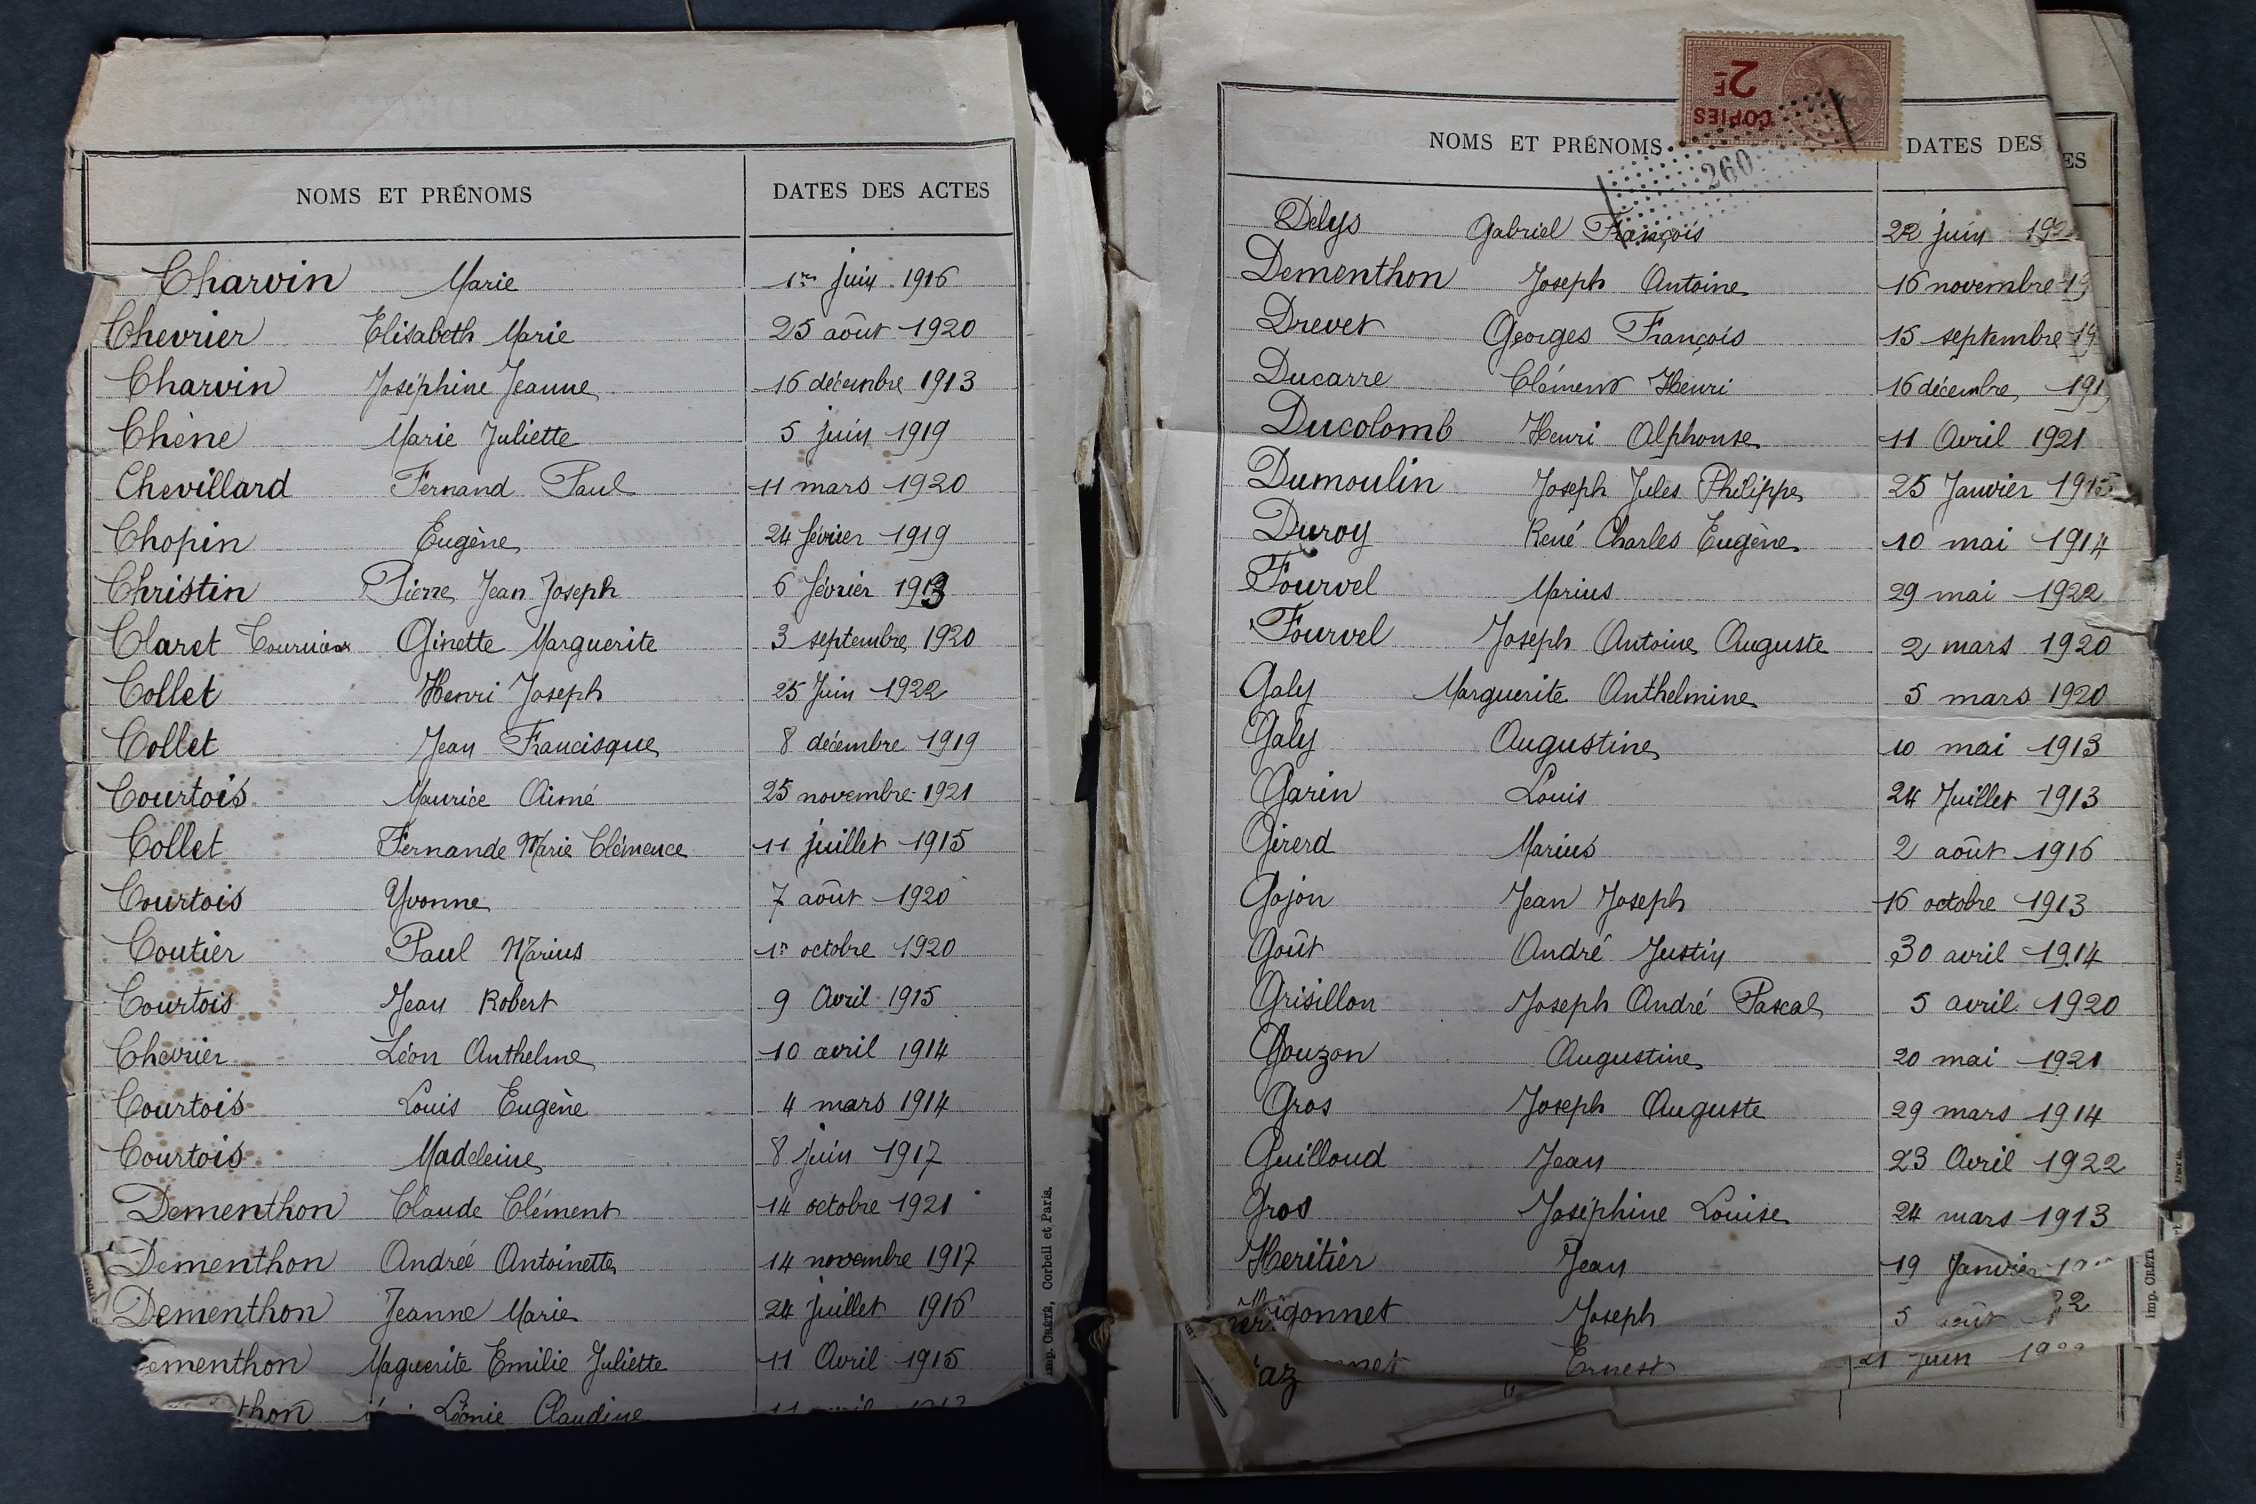 NOMS ET PRÉNOMS DATES DES ACTES
Charvin Marie 1er juin 1916
Chevrier Elisabeth Marie 25 août 1920
Charvin Joséphine Jeanne 16 décembre 1913
Chêne Marie Juliette 5 juin 1919
Chevillard Fernand Paul 11 mars 1920
Chopin Eugène 24 février 1919
Christin Pierre Jean Joseph 6 février 1913
Claret Ginette Marguerite 3 septembre 1920
Collet Henri Joseph 25 Juin 1922
Collet Jean Francisque 8 décembre 1919
Courtois Maurice Aimé 25 novembre 1921
Collet Fernande Marie Clémence 11 juillet 1915
Courtois Yvonne 7 août 1920
Coutier Paul Marius 1r octobre 1920
Courtois Jean Robert 9 Avril 1915
Chevrier Léon Anthelme 10 avril 1914
Courtois Louis Eugène 4 mars 1914
Courtois Madeleine 8 juin 1917
Dementhon Claude Clément 14 octobre 1921
Dementhon Andreé Antoinette 14 novembre 1917
Dementhon Jeanne Marie 24 Juillet 1916
ementhon Maguerite Emilie Juliette 11 Avril 1915
thon Léonie Claudine
Imp. CRÉTÉ, Corbeil et Paris.
COPIES 2F
260
NOMS ET PRÉNOMS DATES DES ES
Delys Gabriel François 22 juin
Dementhon Joseph Antoine 16 novembre 19
Drevet Georges François 15 septembre 19
Ducarre Clément Henri 16 décembre 191
Ducolomb Henri Alphonse 11 Avril 1921
Dumoulin Joseph Jules Philippe 25 Janvier 1915
Duroy René Charles Eugène 10 mai 1914
Fourvel Marius 29 mai 1922
Fourvel Joseph Antoine Auguste 2 mars 1920
Galy Marguerite Anthelmine 5 mars 1920
Galy Augustine 10 mai 1913
Garin Louis 24 Juillet 1913
Girerd Marius 2 août 1916
Gojon Jean Joseph 16 octobre 1913
Goût André Justin 30 avril 1914
Grisillon Joseph André Pascal 5 avril 1920
Gouzon Augustine 20 mai 1921
Gros Joseph Auguste 29 mars 1914
Guilloud Jean 23 Avril 1922
Gros Joséphine Louise 24 mars 1913
Heritier Jean 19 Janvier
igonnet Joseph 5 août 22
az nnet Ernest 21 juin
Imp. CRÉTÉ